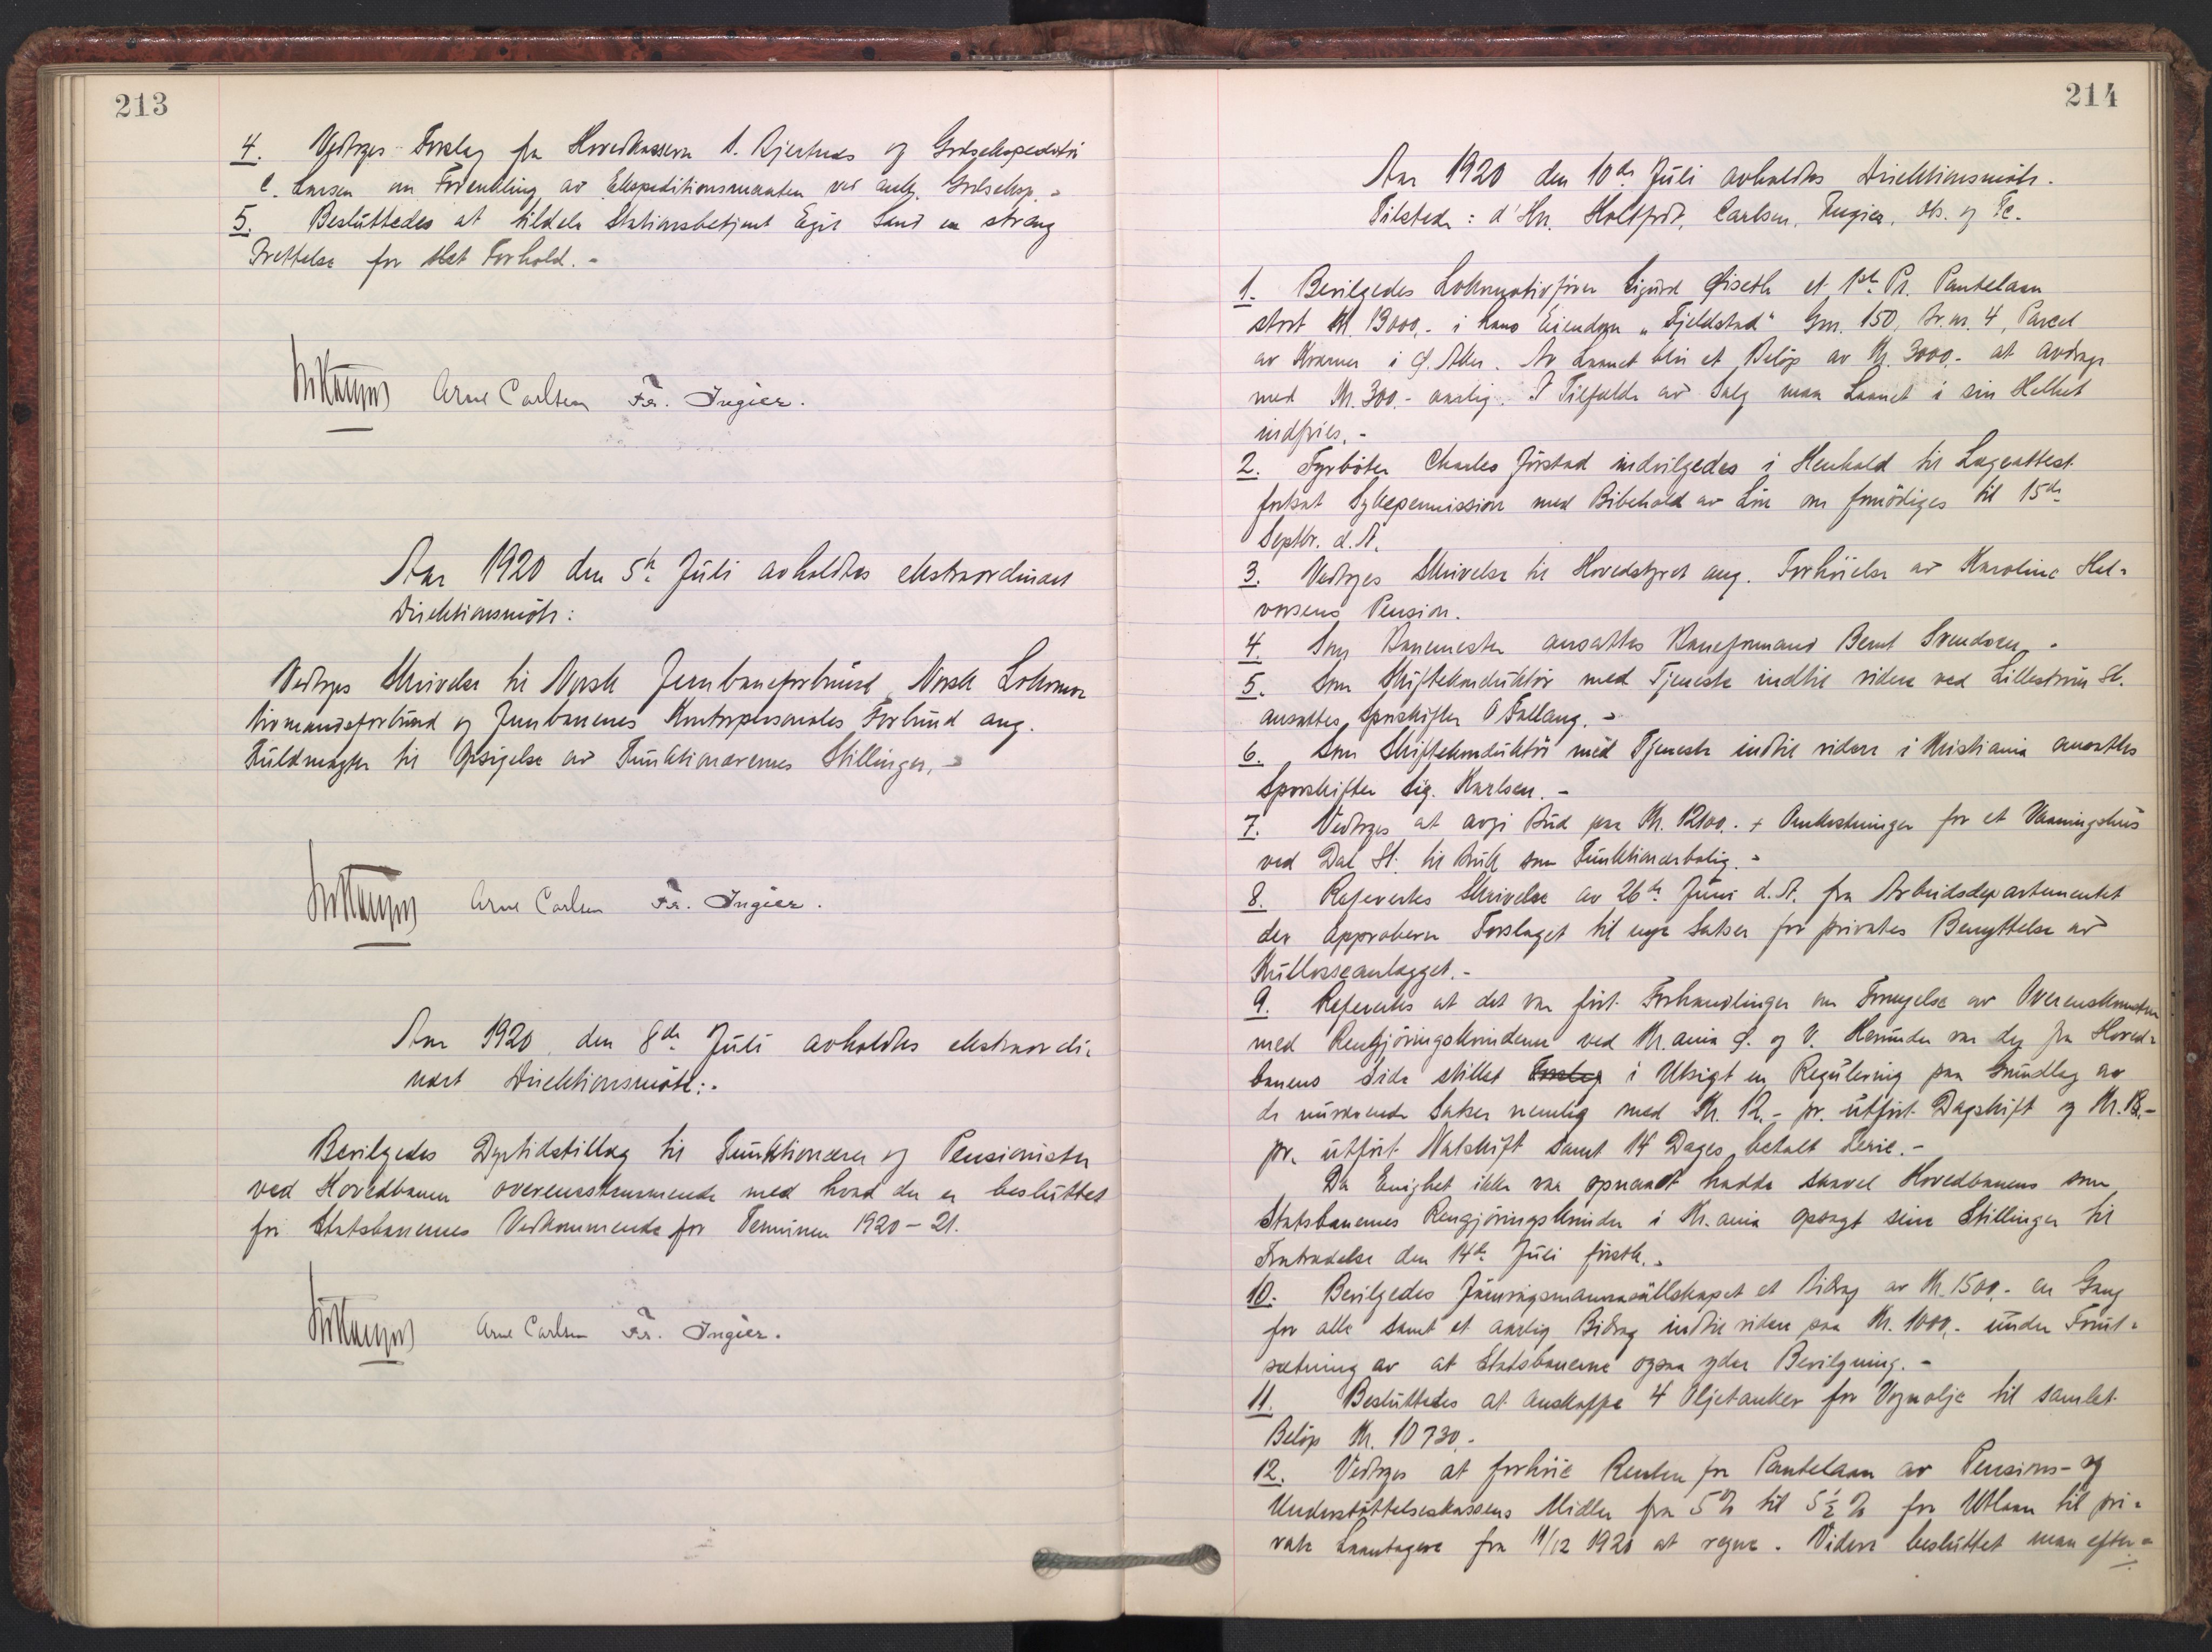 213
4. Vedtoges Forslag fra Hovedkasserer A. Gjertsens og Godsekspeditör
C. Larsen om Forenkling av Ekspeditionsmaaten ved ank. Godseksp. -
5. Besluttedes at tildele Stationsbetjent Egil Sand en streng
Irettelse for slet Forhold. -
Arne Carlsen Fr. Ingier.
Aar 1920 den 5te Juli avholdtes ekstraordinært
Direktionsmöte:
Vedtoges Skrivelse til Norsk Jernbaneforbund, Norsk Lokomo-
tivmandsforbund og Jernbanernes Kontorpersonales Forbund ang.
Fuldmagter til Opsigelse av Funktionærernes Stillinger. -
Arne Carlsen Fr. Ingier.
Aar 1920 den 8de Juli avholdtes ekstraordi-
nært Direktionsmöte: -
Bevilgedes Dyrtidstillæg til Funktionærer og Pensionister
ved Hovedbanen overensstemmende med hvad der er besluttet
for Statsbanernes Vedkommende for Terminen 1920-21.
Arne Carlsen Fr. Ingier.
214
Aar 1920 den 10de Juli avholdtes Direktionsmöte.
Tilstede: d'Hrr. Holtfodt, Carlsen, Ingier, Ots. og Tc.
1. Bevilgedes Lokomotivförer Sigurd Øiseth et 1ste Pr. Pantelaan
stort Kr. 13000,- i hans Eiendom "Fjeldstad" Gnr. 150, Br.nr. 4, Parcel
av i Ø. Aker. Av Laanet blir et Belöp av Kr. 3000.- at avdrage
med Kr. 300.- aarlig. I Tilfælde av Salg maa Laanet i sin Helhet
indfries. -
2. Fyrböter Charles Jörstad indvilgedes i Henhold til Lægeattest
fortsat Sykepermission med Bibehold av Lön om fornödiges til 15de
Septbr. d.A.
3. Vedtoges Skrivelse til Hovedstyret ang. Forhöielse av Karoline Hal-
vorsens Pension.
4. Som Banemester ansattes Baneformand Bernt Svendsen. -
5. Som Skiftekonduktör med Tjeneste indtil videre ved Lilleström St.
ansattes Sporskifter O Fallang. -
6. Som Skiftekonduktör med Tjeneste indtil videre i Kristiania ansattes
Sporskifter Sig. Karlsen. -
7. Vedtoges at avgi Bud paa Kr. 12100.- + Omkostninger for et Vaaningshus
ved Dal St. til Bruk som Funktionærbolig. -
8. Refertes Skrivelse av 26de Juni d.A. fra Arbeidsdepartementet
der approberer Forslaget til nye Satser for privates Benyttelse av
Kullosseanlægget. -
9. Refertes at det var fört Forhandlinger om Fornyelse av Overenskomsten
med Rengjöringskvinderne ved Kr.ania Ø. og V. Herunder var der fra Hoved-
banens Side stillet Forslag i Utsigt en Regulering paa Grundlag av
de nuværende Satser nemlig med Kr. 12.- pr. utfört Dagskift og Kr. 13.-
pr. utfört Natskift samt 14 Dages betalt Ferie. -
Da Enighet ikke var opnaadt hadde saavel Hovedbanens som
Statsbanernes Rengjöringskvinder i Kr.ania opsagt sine Stillinger til
Fratrædelse den 14de Juli förstk. -
10. Bevilgedes Järnvägsmannasällskapet et Bidrag av Kr. 1500.- en Gang
for alle samt et aarlig Bidrag indtil videre paa Kr. 1000,- under Forut-
sætning av at Statsbanerne ogsaa yder Bevilgning. -
11. Besluttedes at anskaffe 4 Oljetanker for Vognolje til samlet
Belöp Kr. 10730.-
12. Vedtoges at forhöie Renten for Pantelaan av Pensions- og
Understöttelseskassens Midler fra 5 % til 5 1/2 % for Utlaan til pri-
vate Laantagere fra 11/12 1920 at regne. Videre besluttet man efter-